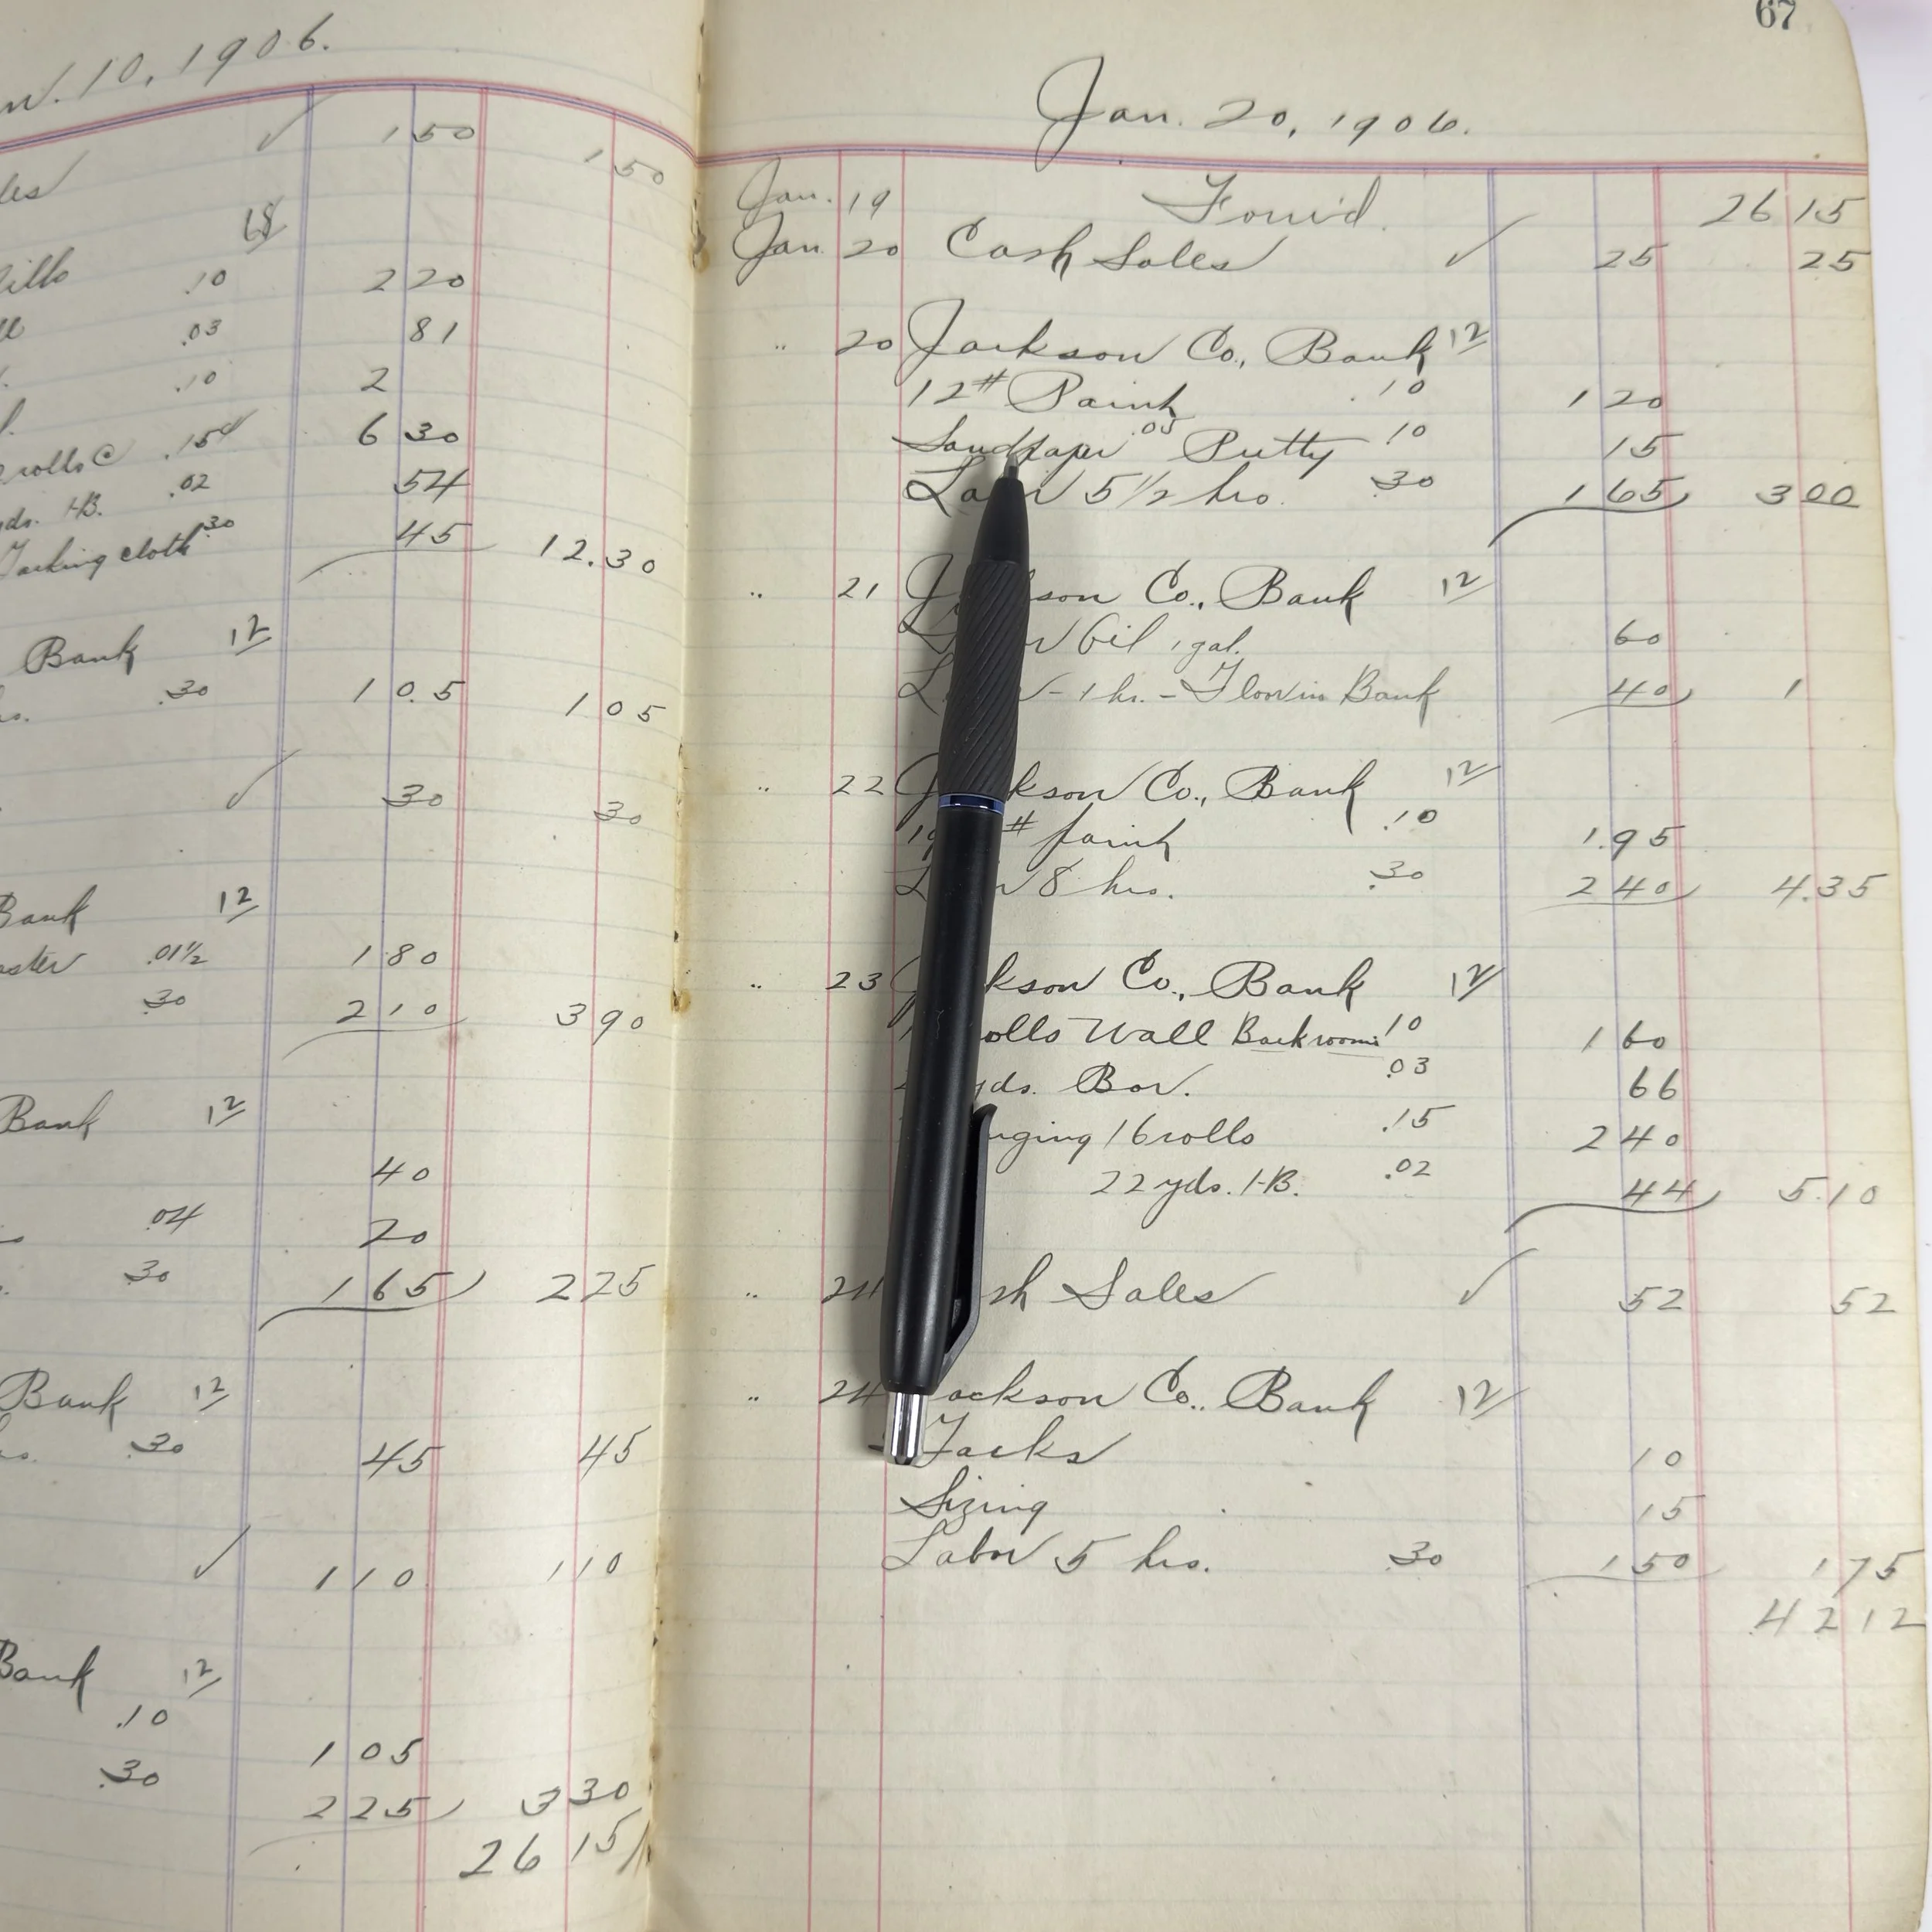 10, 1906.
✓ 150 150
18
.10 220
.03 81
.10 2
rolls @ .15 630
yds. H.B. .02 54
Tacking cloth .30 45 12.30
Bank 12
.30 10.5 105
✓ 30 30
Bank 12
.01½ 180
.30 210 390
Bank 12
40
.04 20
.30 165 225
Bank 12
.30 45 45
✓ 110 110
Bank 12
.10 105
.30 225 330
2615
67
Jan. 20, 1906.
Jan. 19 For'd. 2615
Jan. 20 Cash Sales ✓ 25 25
" 20 Jackson Co., Bank 12
12# Paint .10 120
Sandpaper .05 Putty .10 15
Labor 5½ hrs. .30 165 300
" 21 Jackson Co., Bank 12
Oil 1 gal. 60
- 1 hr. - Floor in Bank 40 1
" 22 Jackson Co., Bank 12
# paint .10 1.95
8 hrs. .30 240 4.35
" 23 Jackson Co., Bank 12
rolls Wall Back room .10 160
yds. Bor. .03 66
Hanging 16 rolls .15 240
22 yds. H.B. .02 44 5.10
" 24 Cash Sales ✓ 52 52
" 24 Jackson Co., Bank 12
Tacks 10
Sizing 15
Labor 5 hrs. .30 150 175
4212